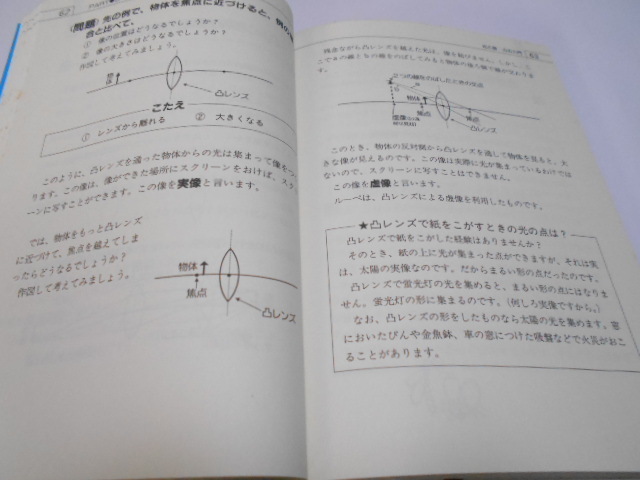 62
PART
(問題) 先の例で、物体を焦点に近づけると、例の
合と比べて、
① 像の位置はどうなるでしょうか?
② 像の大きさはどうなるでしょうか?
作図して考えてみましょう。
物体
凸レンズ
こたえ
① レンズから離れる ② 大きくなる
このように、凸レンズを通った物体からの光は集まって像をつ
ります。この像は、像ができた場所にスクリーンをおけば、スク
ーンに写すことができます。この像を実像と言います。
では、物体をもっと凸レンズ
に近づけて、焦点を越えてしま
ったらどうなるでしょうか?
作図して考えてみましょう。
物体
焦点
凸レンズ
63
残念ながら凸レンズを越えた光は、像を結びません。しかし、こ
こで2つの線をのばしてみると物体の後ろ側で線が交わりま
す。
2つの線をのばしたときの交点
焦点
凸レンズ
このとき、物体の反対側から凸レンズを通して物体を見ると、大
きな像が見えるのです。この像は実際に光が集まっているわけでは
ないので、スクリーンに写すことはできません。
この像を虚像と言います。
ルーペは、凸レンズによる虚像を利用したものです。
★凸レンズで紙をこがすときの光の点は?
凸レンズで紙をこがした経験はありませんか?
そのとき、紙の上に光が集まった点ができますが、それは実
は、太陽の実像なのです。だからまるい形の点だったのです。
凸レンズで蛍光灯の光を集めると、まるい形の点にはなりま
せん。蛍光灯の形に集まるのです。(何しろ実像ですから。)
なお、凸レンズの形をしたものなら太陽の光を集めます。窓
においたびんや金魚鉢、車の窓につけた吸盤などで火災がおこ
ることがあります。